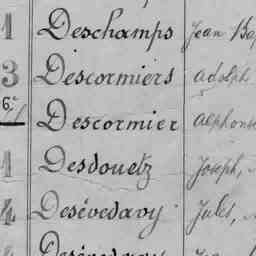 1 Deschamps Jean Ba
3 Descormiers Adolph
6.e Descormier Alphonse
1 Desdouetz Joseph,
4 Desévedavy Jules,